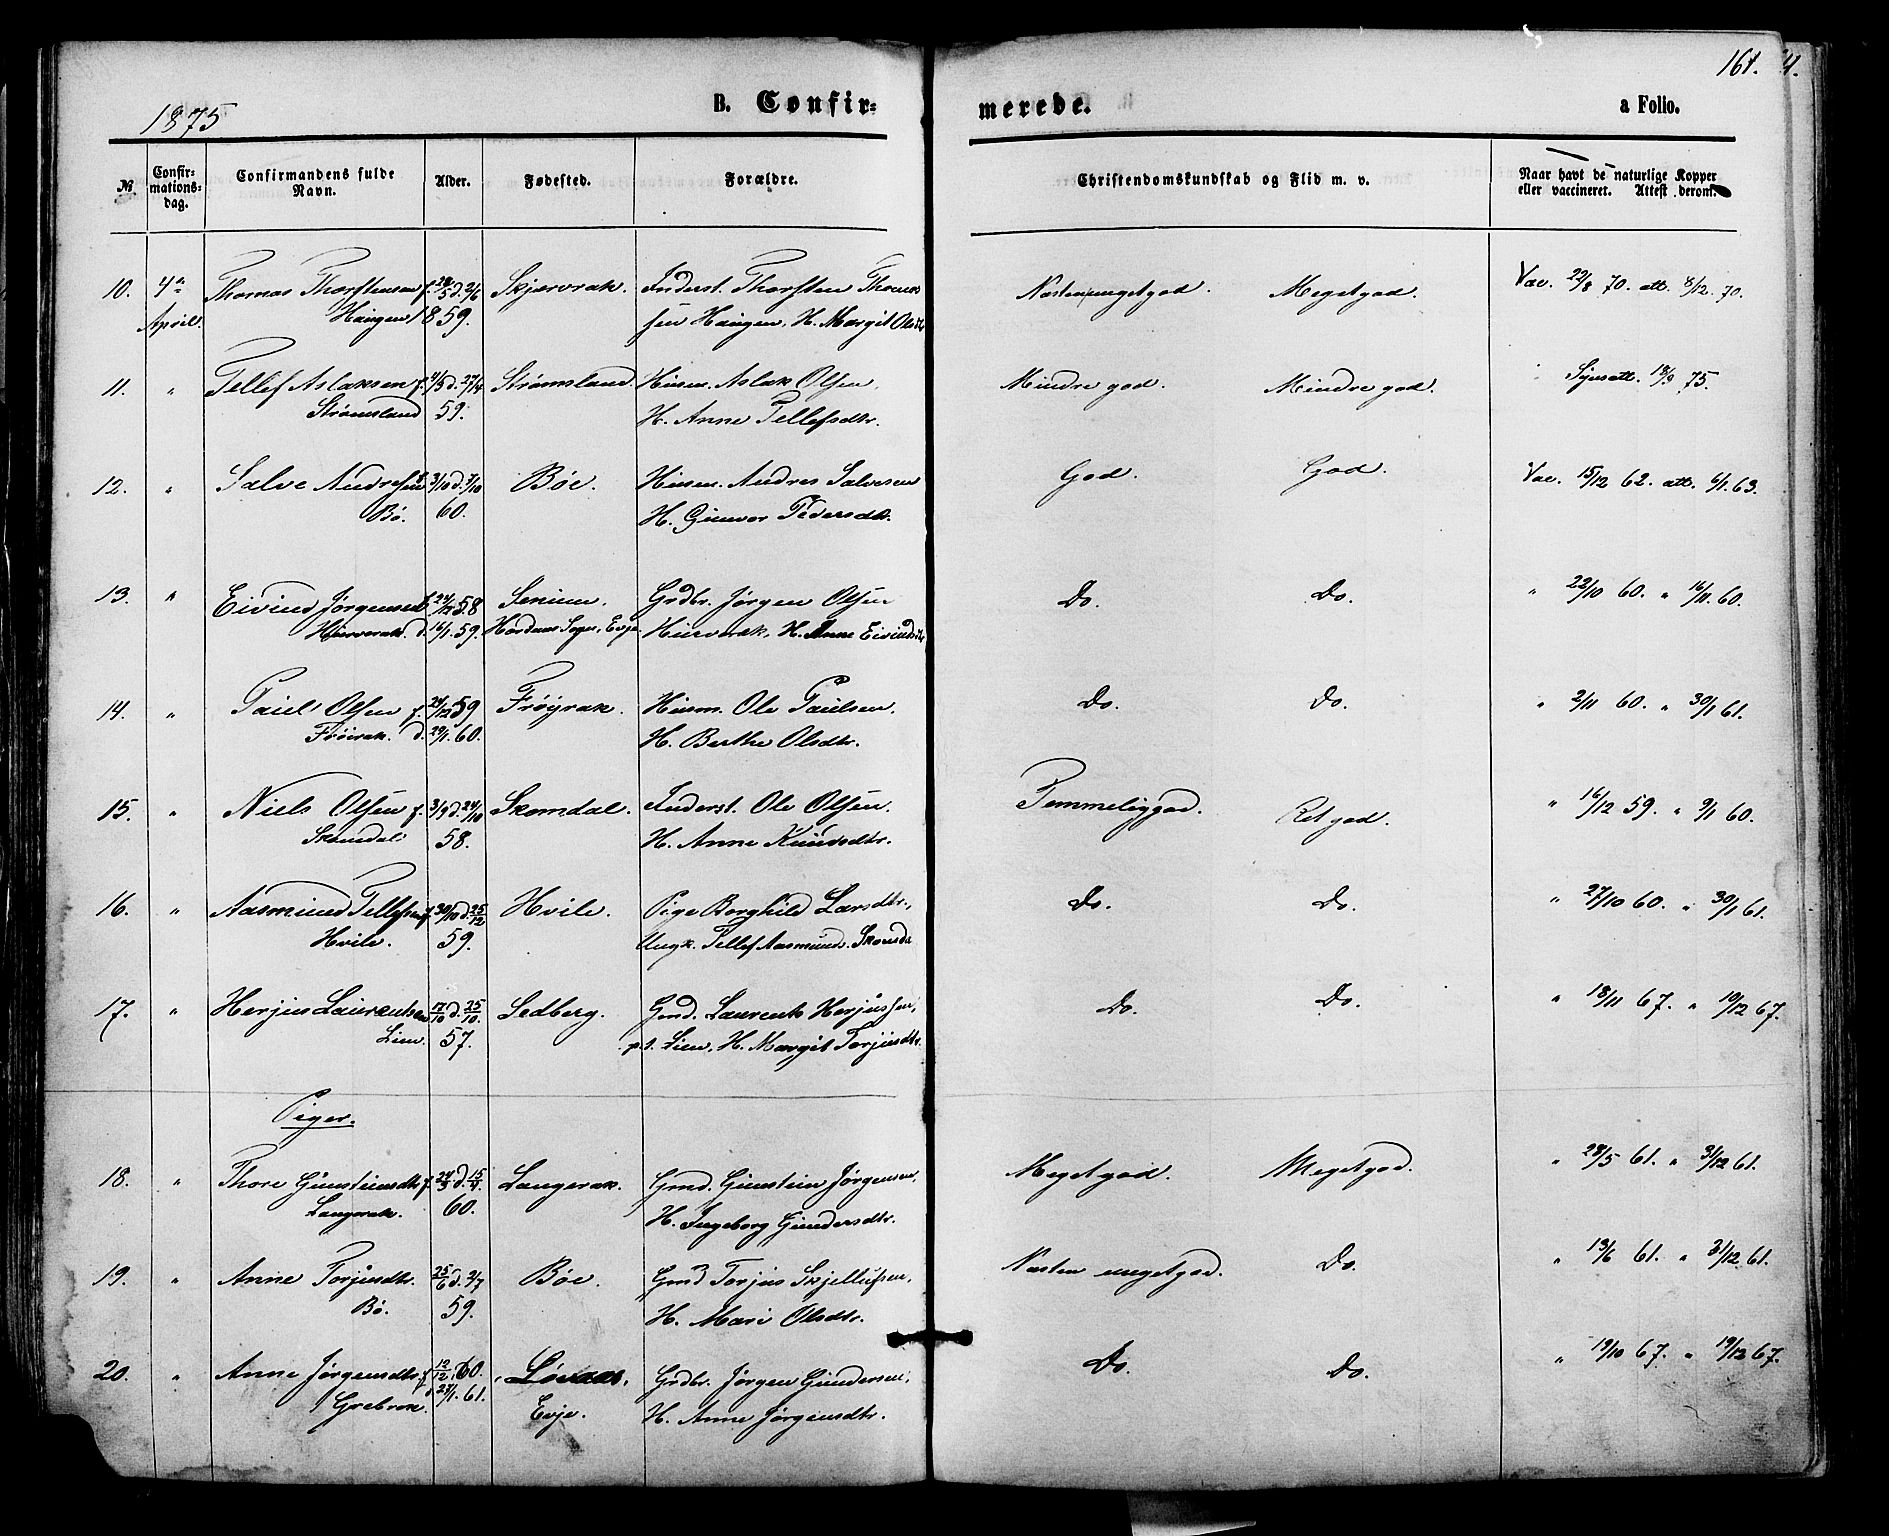 1875
B. Confir-
merede.
a Folio.
161.
№
Confir-
mations-
dag.
Confirmandens fulde
Navn.
Alder.
Fødested.
Forældre.
Christendomskundskab og Flid m. v.
Naar havt de naturlige Kopper
eller vaccineret. Attest derom.
10. 4de Thomas Thorstensen f. 28/5 d. 2/6 Skjervrak. Inderst. Thorsten Thomas Næsten megetgod. Megetgod. Vac. 22/8 70. att. 8/12. 70.
April. Haugen 1859. sen Haugen, H. Margit Olsdtr
11. " Tellef Aslaksen f. 4/3 d. 27/4 Strømsland. Husm. Aslak Olsen, Mindre god. Mindre god. Synsatt. 18/3 75.
Strømsland 59. H. Anne Tellefsdtr.
12. " Salve Andresen 3/10 d. 7/10 Bøe. Husm. Andres Salvesen God. God. Vac. 15/12 62. att. 6/1. 63.
Bö. 60. H. Gunvor Pedersdtr.
13. " Eivind Jørgensen f. 24/12 58 Senum. Grdbr. Jørgen Olsen Do. Do. " 22/10 60. " 16/11. 60.
d. 16/1. 59. Hordnæs Sogn, Evje. H. Anne Eivindsdtr
14. " Paul Olsen f. 24/12 59 Frøyrak. Husm. Ole Paulsen. Do. Do. " 2/11 60. " 30/1 61.
Frøirak. d. 29/1. 60. H. Berthe Olsdtr.
15. " Niels Olsen f. 3/9 d. 24/10 Skomdal. Inderst. Ole Olsen. Temmeliggod. Ret god. " 16/12 59. " 9/1 60.
Skomdal 58. H. Anne Knudsdtr.
16. " Aasmund Tellefsen f. 30/10 d. 25/12 Hvile. Pige Borghild Larsdtr, Do. Do. " 27/10 60. " 30/1 61.
Hvile. 59. Ungk. Tellef Aasmunds. Skomda
17. " Herjus Laurentsen 17/10 d. 25/10. Sedberg. Gmd. Laurents Herjussen, Do. Do. " 18/11 67. " 19/12 67.
Lien. 57. p. t. Lien, H. Margit Torjusdtr.
Piger.
18. " Thore Gunsteinsdtr f. 24/3 d. 15/4. Langerak. Gmd. Gunstein Jørgensen, Megetgod. Megetgod. " 28/5 61. " 31/12 61.
Langerak. 60. H. Ingeborg Gundersdtr.
19. " Anne Torjusdtr. 25/6 d. 3/7 Bøe. Gmd Torjus Skjellufsen, Næsten megetgod. Do. " 13/6 61. " 31/12 61.
Bö. 59. H. Mari Olsdtr.
20. " Anne Jørgensdtr. f. 12/12 60. Løvaas, Grdbr. Jørgen Gundersen, Do. Do. " 19/10 67. " 19/12 67.
Grebrok. d. 27/1. 61. Evje. H. Anne Jørgensdtr.